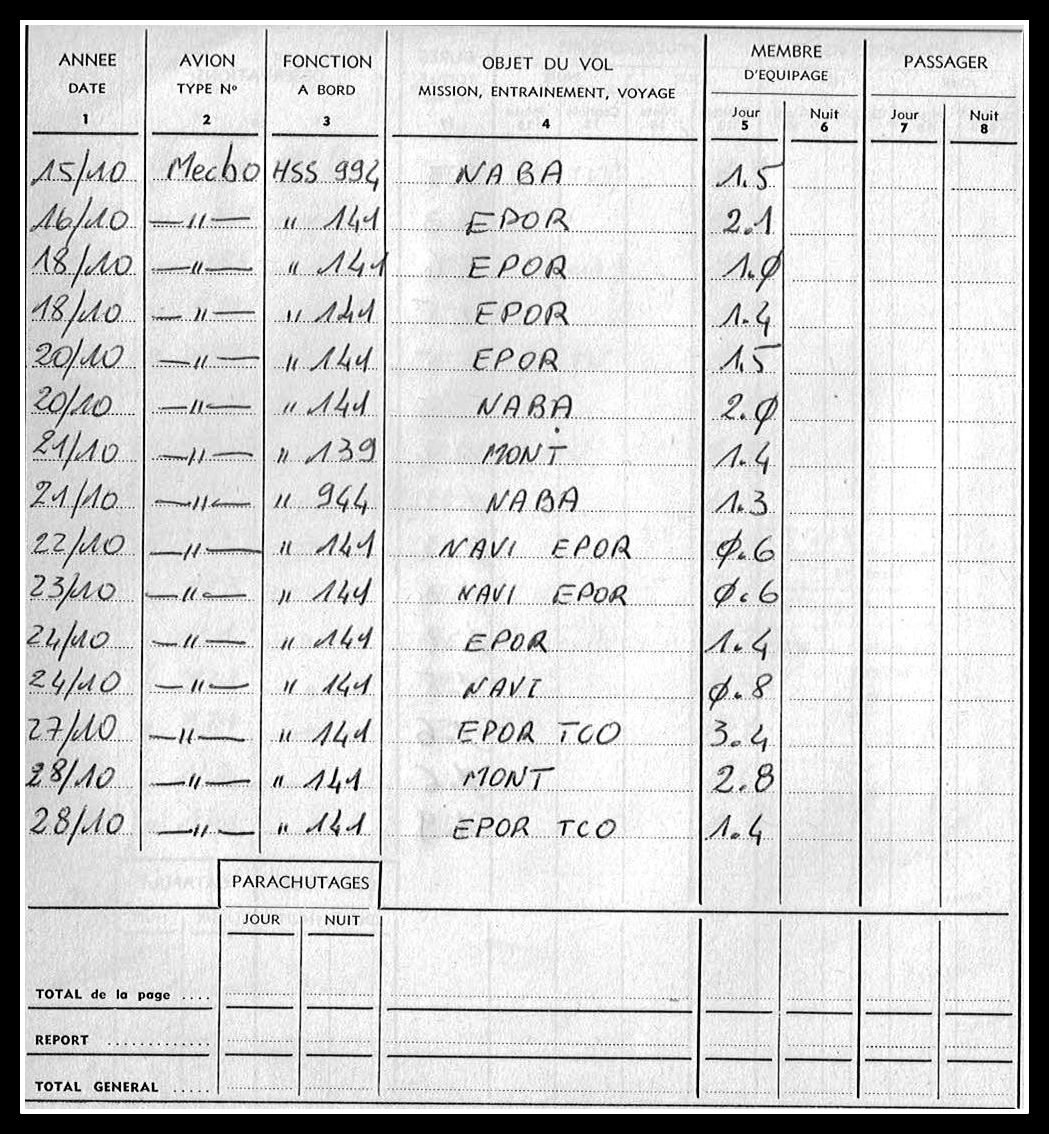 ANNEE AVION FONCTION OBJET DU VOL MEMBRE D'EQUIPAGE PASSAGER
DATE TYPE N° A BORD MISSION, ENTRAINEMENT, VOYAGE Jour Nuit Jour Nuit
1 2 3 4 5 6 7 8
15/10 Mecbo HSS 994 NABA 1.5
16/10 —"— " 141 EPOR 2.1
18/10 —"— " 141 EPOR 1.Ø
18/10 —"— " 141 EPOR 1.4
20/10 —"— " 141 EPOR 1.5
20/10 —"— " 141 NABA 2.Ø
21/10 —"— " 139 MONT 1.4
21/10 —"— " 944 NABA 1.3
22/10 —"— " 141 NAVI EPOR Ø.6
23/10 —"— " 141 NAVI EPOR Ø.6
24/10 —"— " 141 EPOR 1.4
24/10 —"— " 141 NAVI Ø.8
27/10 —"— " 141 EPOR TCO 3.4
28/10 —"— " 141 MONT 2.8
28/10 —"— " 141 EPOR TCO 1.4
PARACHUTAGES
JOUR NUIT
TOTAL de la page ....
REPORT ............
TOTAL GENERAL .....